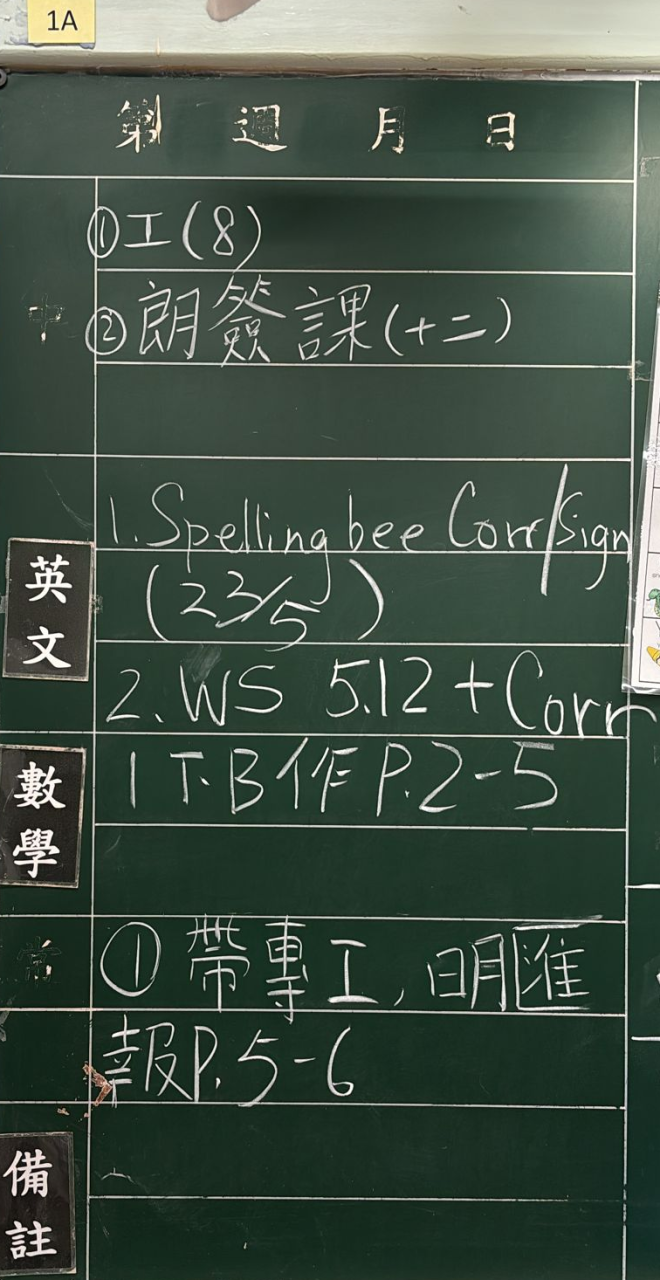 1A
第 週 月 日
中
①工(8)
②朗簽課(十二)
英文
1. Spelling bee Corr/Sign
(23/5)
2. WS 5.12 + Corr
數學
1 T.B作 P.2-5
常
① 帶專工, 明匯
報P.5-6
備註